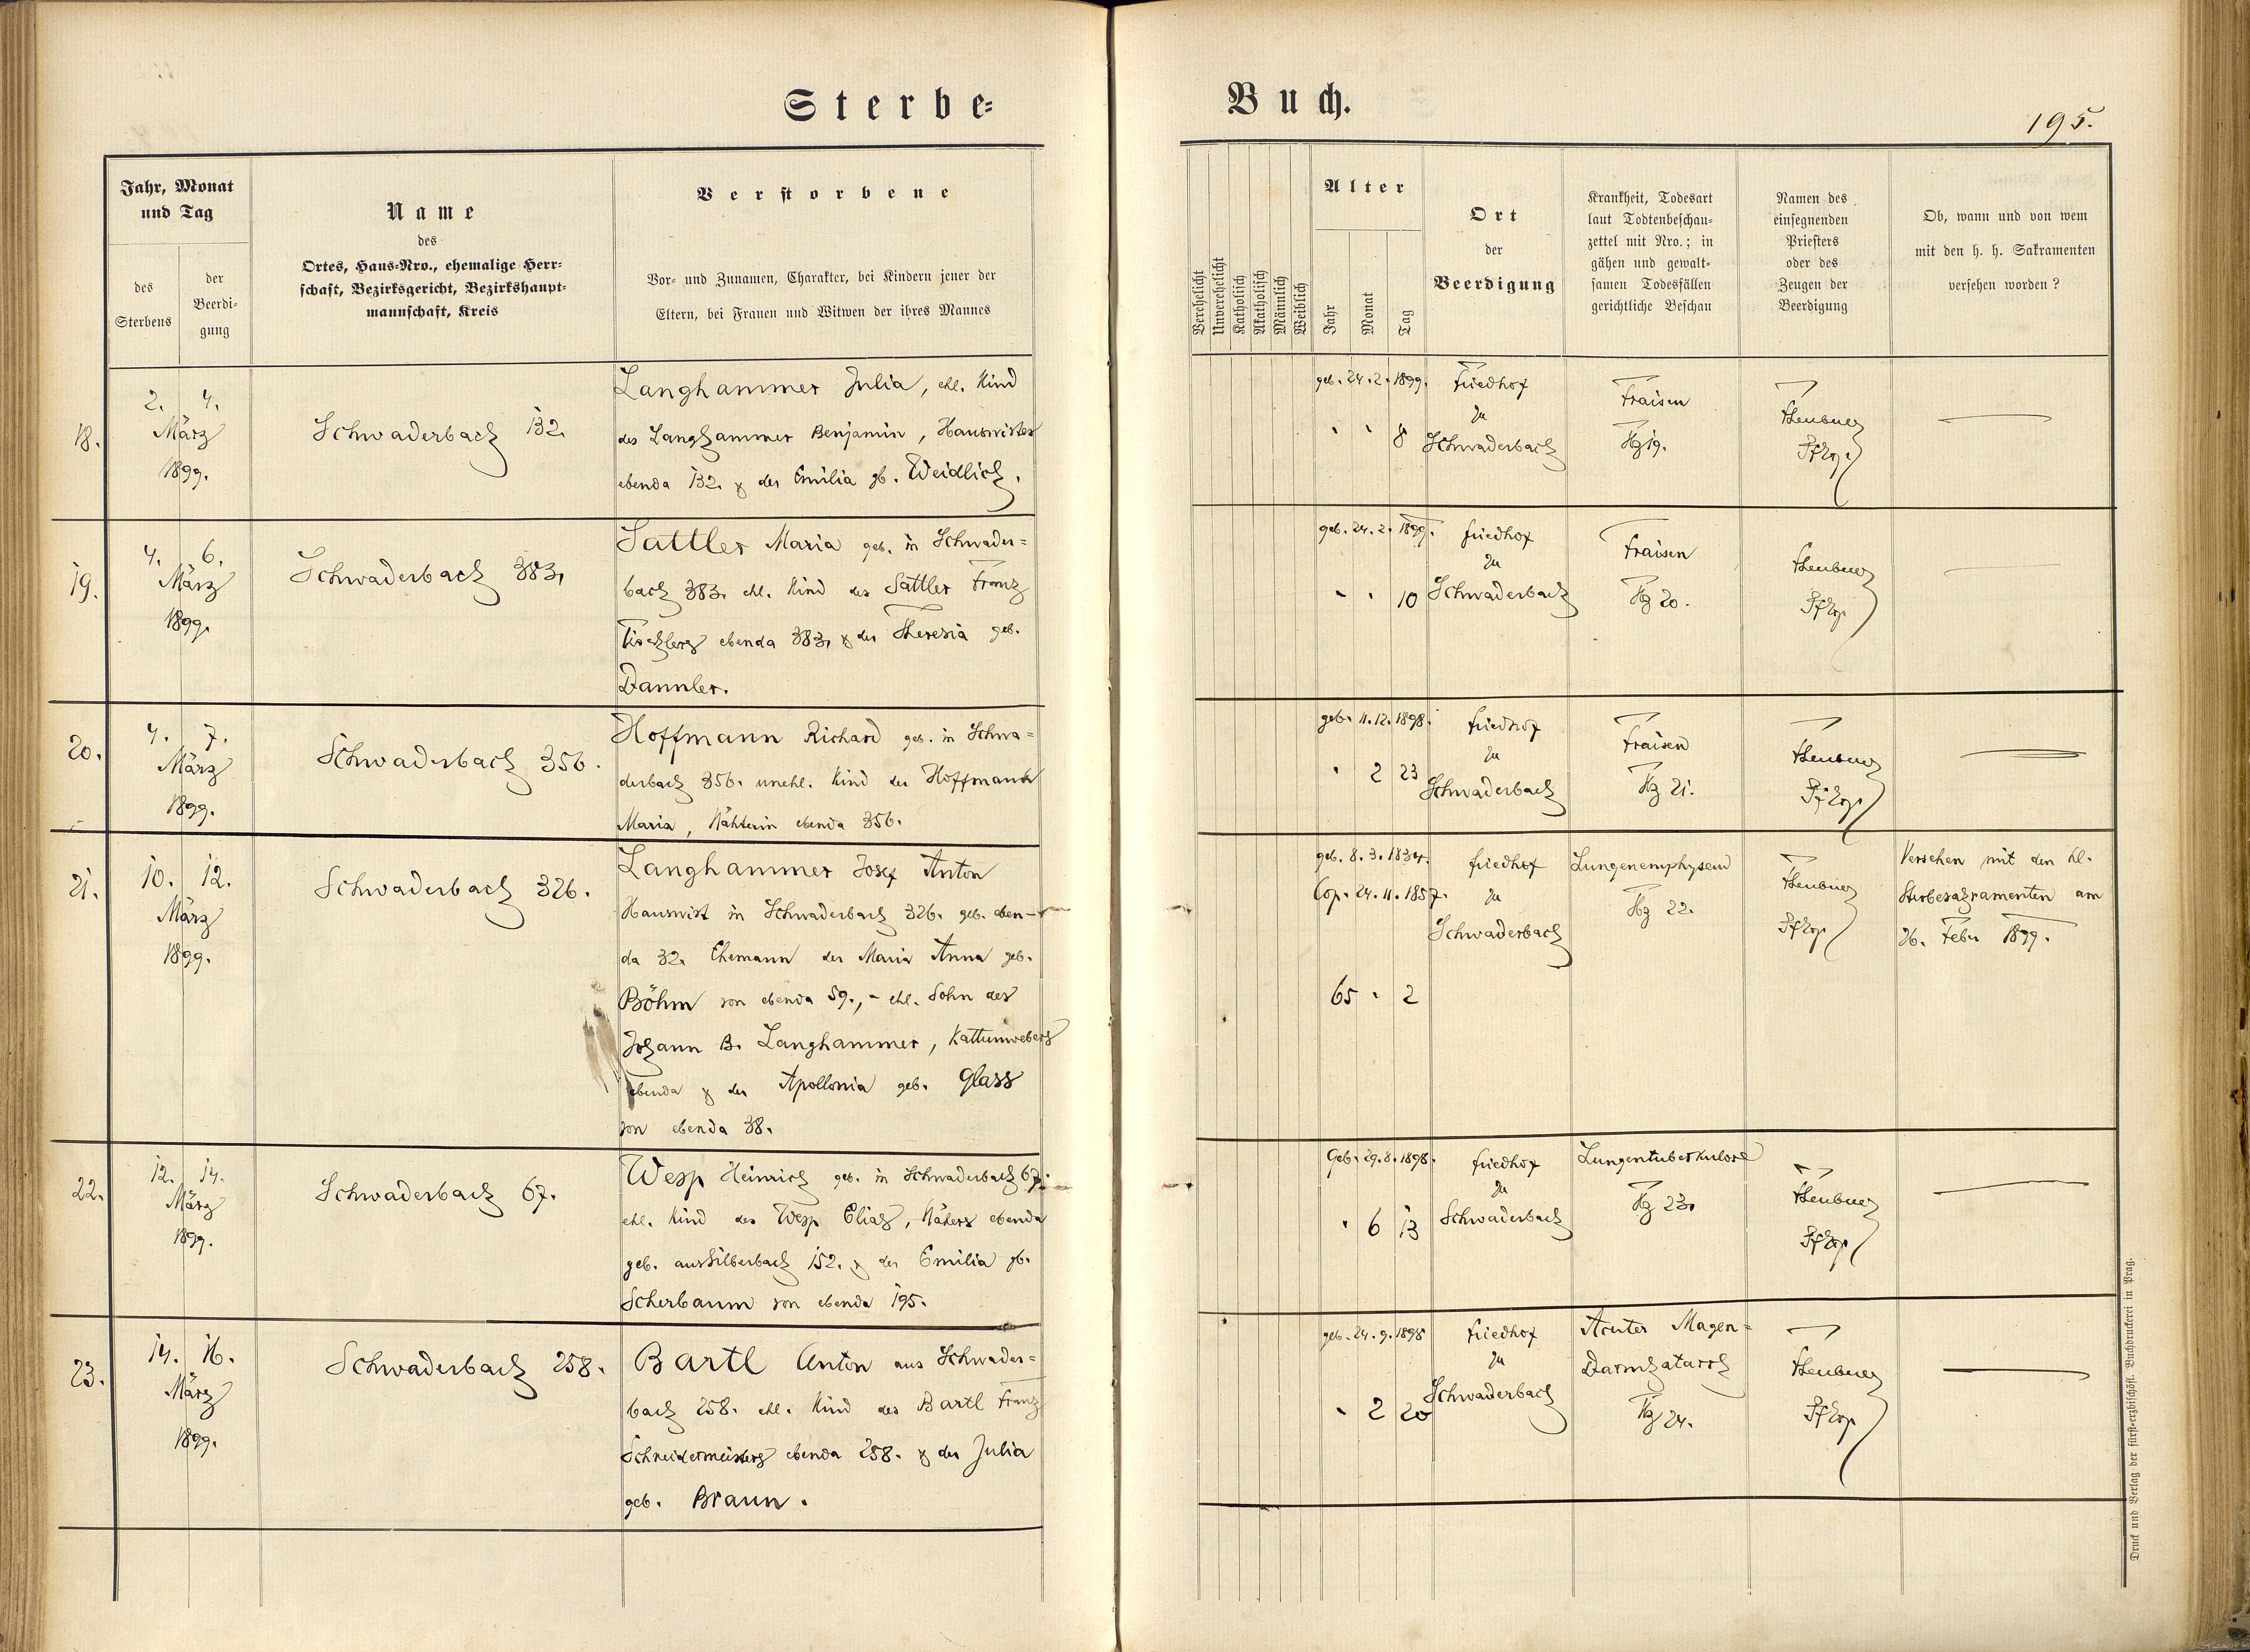 Sterbe-
Buch.
195.
Jahr, Monat
und Tag
des
Sterbens
der
Beerdi-
gung
Name
des
Ortes, Haus-Nro., ehemalige Herr-
schaft, Bezirksgericht, Bezirkshaupt-
mannschaft, Kreis
Verstorbene
Vor- und Zunamen, Charakter, bei Kindern jener der
Eltern, bei Frauen und Witwen der ihres Mannes
Verehelicht
Unverehelicht
Katholisch
Akatholisch
Männlich
Weiblich
Alter
Jahr
Monat
Tag
Ort
der
Beerdigung
Krankheit, Todesart
laut Todtenbeschau-
zettel mit Nro.; in
gähen und gewalt-
samen Todesfällen
gerichtliche Beschau
Namen des
einsegnenden
Priesters
oder des
Zeugen der
Beerdigung
Ob, wann und von wem
mit den h. h. Sakramenten
versehen worden?
18.
2. 4.
März
1899.
Schwaderbach 132.
Langhammer Julia, ehl. Kind
des Langhammer Benjamin, Hauswirtes
ebenda 132. & der Emilia gb. Weidlich.
geb. 24. 2. 1899.
" " 8
Friedhof
zu
Schwaderbach
Fraisen
19.
19.
4. 6.
März
1899.
Schwaderbach 383.
Sattler Maria geb. in Schwader=
bach 383. ehl. Kind des Sattler Franz
Tischlers ebenda 383. & der Theresia geb.
Dannler.
geb. 24. 2. 1899.
" " 10
Friedhof
zu
Schwaderbach
Fraisen
20.
20.
4. 7.
März
1899.
Schwaderbach 356.
Hoffmann Richard geb. in Schwa=
derbach 356. unehl. Kind der Hoffmann
Maria, Nähterin ebenda 356.
geb. 11. 12. 1898.
" 2 23
Friedhof
zu
Schwaderbach
Fraisen
21.
21.
10. 12.
März
1899.
Schwaderbach 326.
Langhammer Josef Anton
Hauswirt in Schwaderbach 326. geb. eben-
da 32. Ehemann der Maria Anna geb.
Böhm von ebenda 59., - ehl. Sohn des
Johann B. Langhammer, Kattunwebers
ebenda & der Apollonia geb. Glass
von ebenda 38.
geb. 8. 3. 1834.
Cop. 24. 11. 1857.
65 " 2
Friedhof
zu
Schwaderbach
Lungenemphysem
22.
Versehen mit den hl.
Sterbesakramenten am
26. Feber 1899.
22.
12. 14.
März
1899.
Schwaderbach 67.
Wesp Heinrich geb. in Schwaderbach 67.
ehl. Kind des Wesp Elias, Nähers ebenda
geb. aus Silberbach 152. & der Emilia gb.
Scherbaum von ebenda 195.
Geb. 29. 8. 1898.
" 6 13
Friedhof
zu
Schwaderbach
Lungentuberkulose
23.
23.
14. 16.
März
1899.
Schwaderbach 258.
Bartl Anton aus Schwader=
bach 258. ehl. Kind des Bartl Franz
Schneidermeisters ebenda 258. & der Julia
geb. Braun.
geb. 24. 9. 1898
" 2 20
Friedhof
zu
Schwaderbach
Acuter Magen=
Darmkatarrh
24.
Druck und Verlag der fürst-erzbischöfl. Buchdruckerei in Prag.